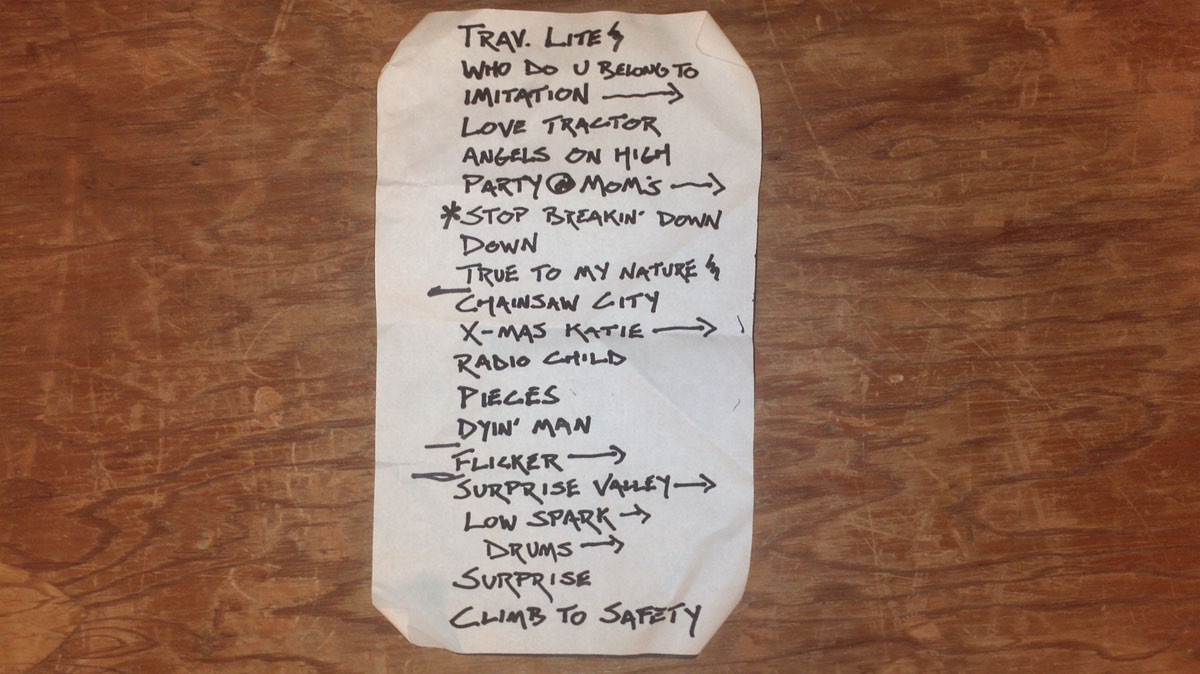 TRAV. LITE ϟ
WHO DO U BELONG TO
IMITATION →
LOVE TRACTOR
ANGELS ON HIGH
PARTY @ MOM'S →
*STOP BREAKIN' DOWN
DOWN
TRUE TO MY NATURE ϟ
CHAINSAW CITY
X-MAS KATIE →
RADIO CHILD
PIECES
DYIN' MAN
FLICKER →
SURPRISE VALLEY →
LOW SPARK →
DRUMS →
SURPRISE
CLIMB TO SAFETY